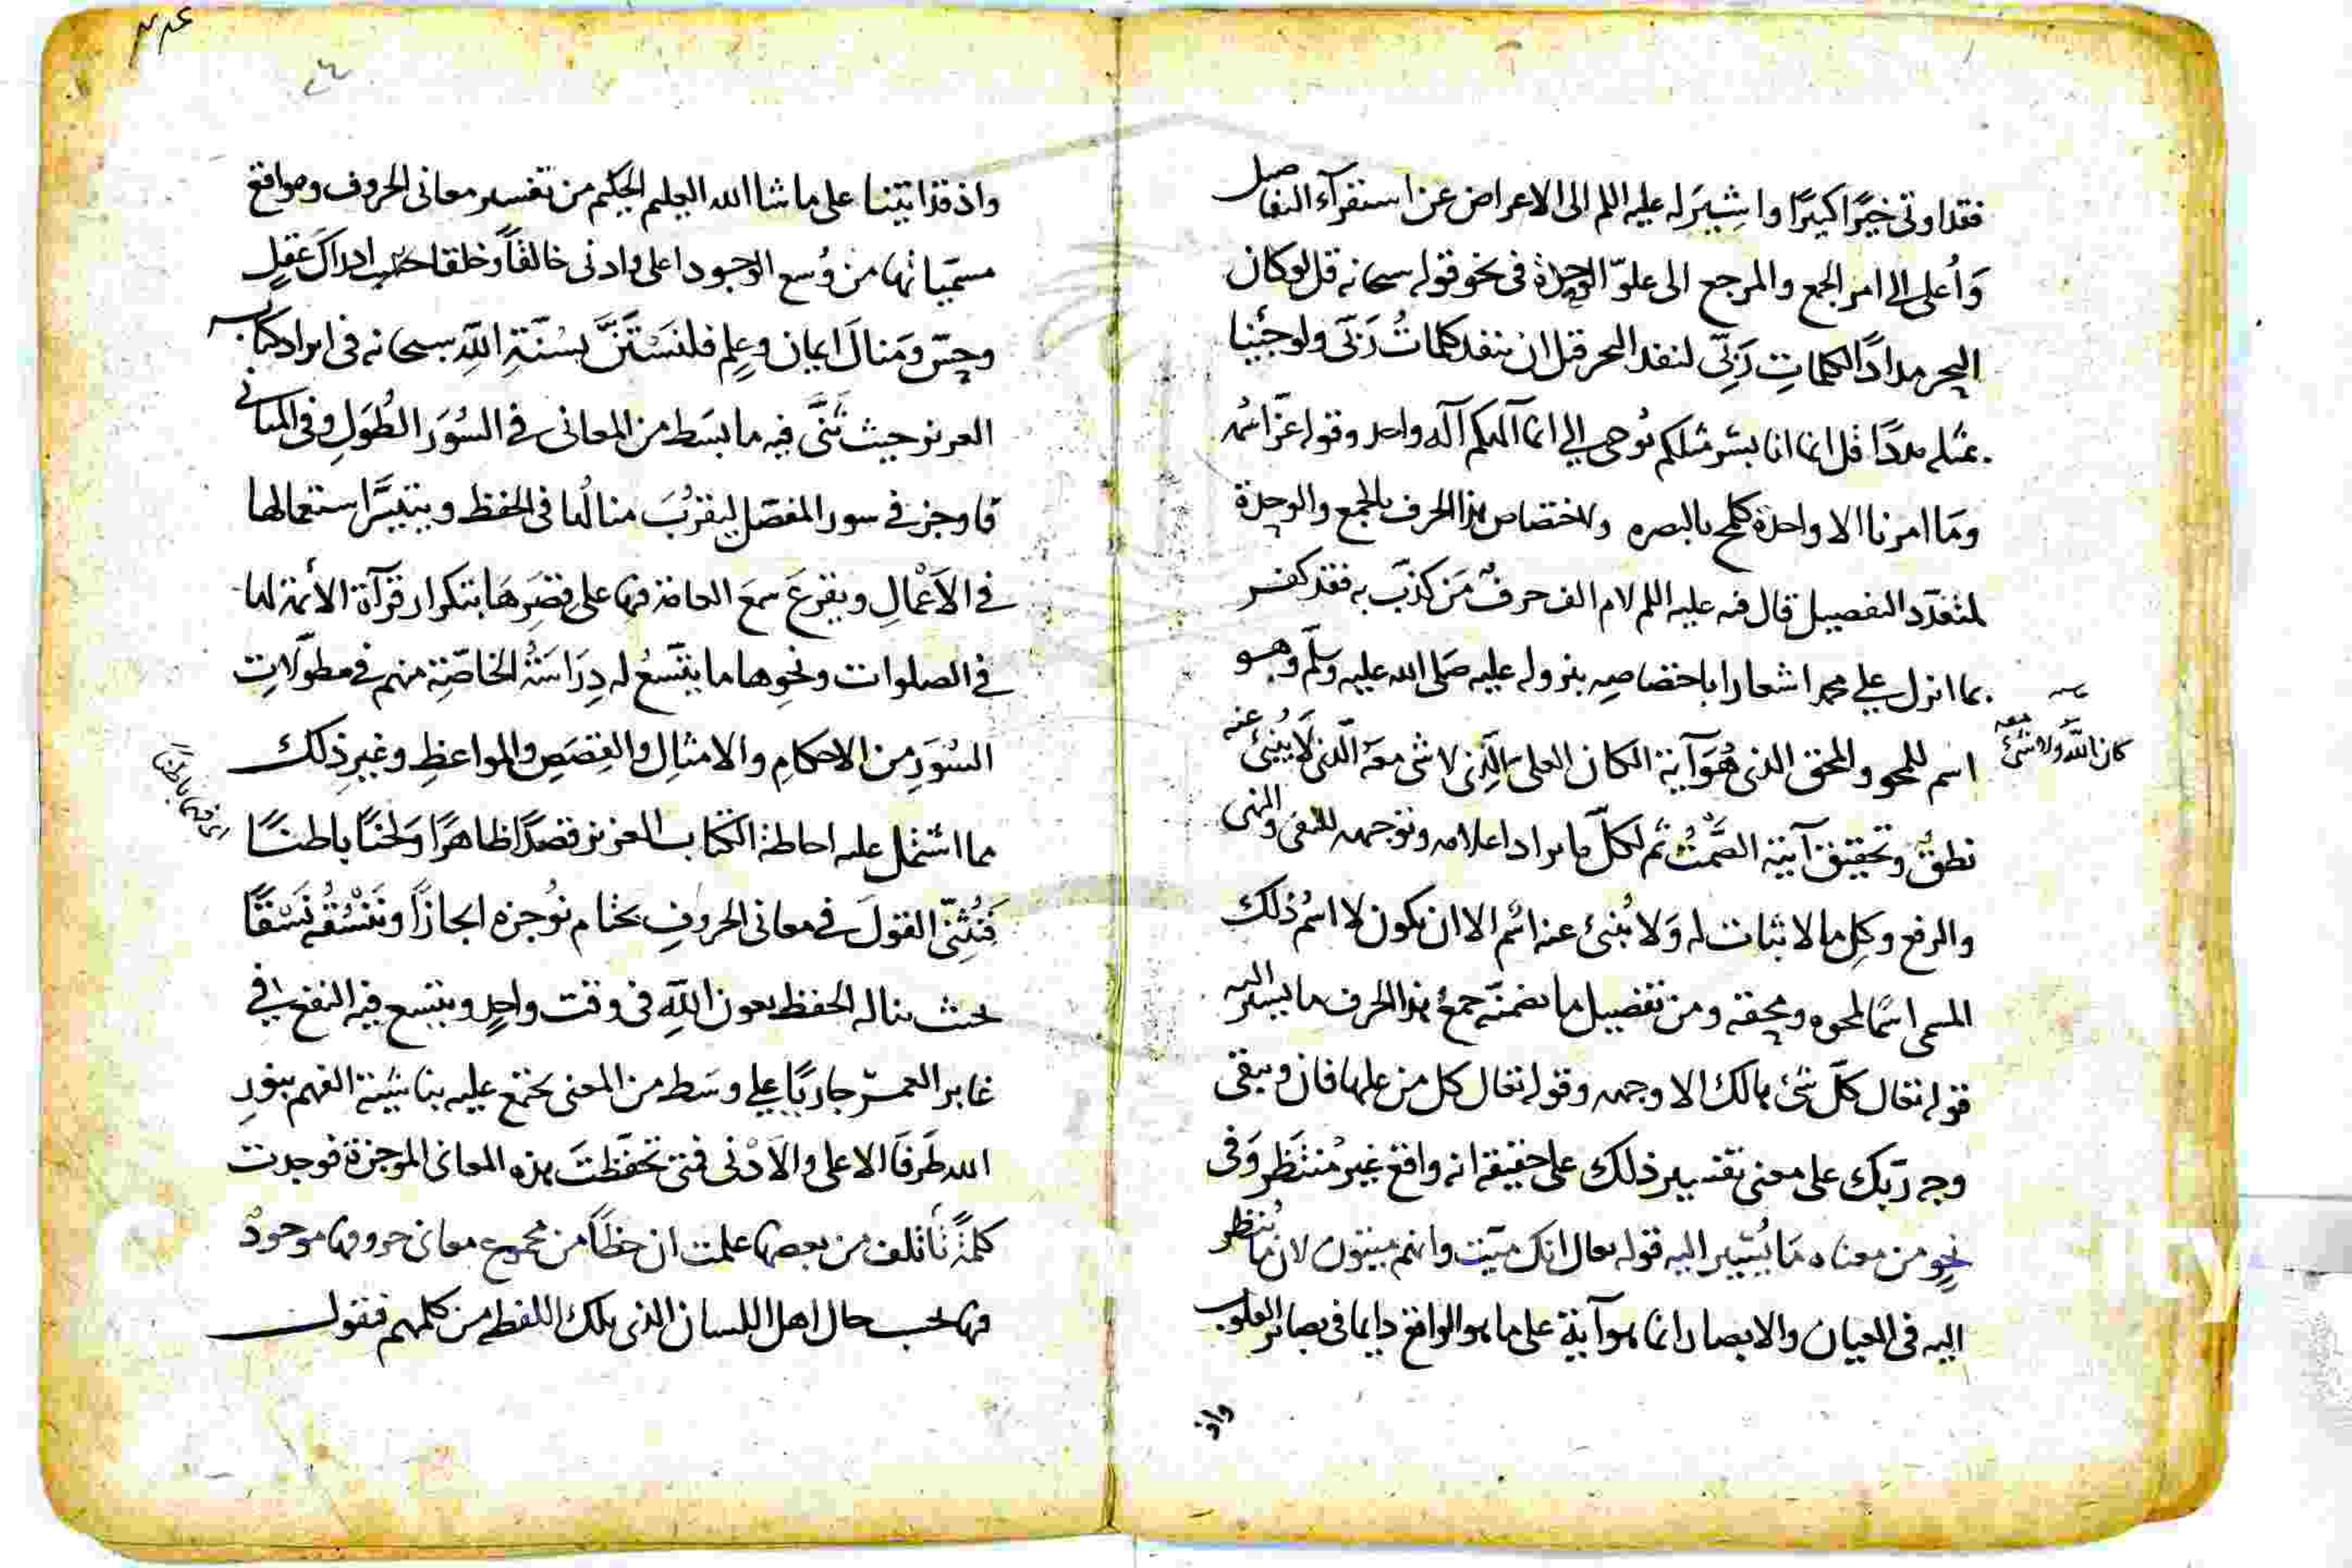 فقد اوتى خيرًا كثيرًا واشير له عليه السلم الى الاعراض عن استقرآء التفاصيل
وَأعلى الى امر الجمع والمرجع الى علوّ الوحدة فى نحو قوله سبحانه قل لو كان
البحر مدادًا لكلماتِ رَبِّى لنفد البحر قبل ان تنفد كلماتُ رَبّى ولو جئنا
بمثله مددًا قل انما انا بشر مثلكم يُوحى الىّ انما آلهكم آله واحد وقوله عزّ اسمُه
ومَا امرنا الا واحدة كلمح بالبصر ولاختصاص هذا الحرف بالجمع والوحدة
لمتعدّد التفصيل قال فيه عليه السلم لام الف حرفٌ مَن كذّبَ به فقد كفر
بما انزل على محمد اشعارا باختصاصِه بنزوله عليه صَلى الله عليه وسلّم وهو
اسم للمحو والمحق الذى هُوَ آية الكان العلى الّذِى لا شى معَهُ الّذى لَا يُنبئ عنه
كان اللّه ولا شئ معه
نطقٌ وتحقيق آيته الصَّمْتُ ثم لكلّ ما يراد اعلامه وتوجهه للنفى والنهى
والرفع وكلِ ما لا ثبات له وَلا يُنبئ عنه اسْم الا ان يكون لا اسْم ذلك
المسمى اسمًا لمحوه ومحقه ومن تفصيل ما تضمنَه جمعُ هذا الحرف ما يشير اليه
قوله تعالى كلّ شئ هالك الا وجهه وقوله تعالى كل من عليها فان ويبقى
وجه ربّك على معنى تفسير ذلك على حقيقة انه واقع غير مُنتَظَر وَفى
نحوٍ من معناه مَا يُشير اليه قوله تعالى انك ميّت وانهم ميتون لان ما يُنتظر
اليه فى العيان والابصار انما هو آية على ما هو الواقع دايما فى بصائر القلوب
واذ
واذ قد اتينا على ما شا الله العليم الحكيم من تفسير معانى الحروف ومواقع
مسمّياتها من وُسع الوجود اعلى وادنى خالقًا وخلقا حسب ادراك عَقلٍ
وحِسّ ومَنالَ ايمان وعِلمٍ فلنَسْتَنَّ بسُنّةِ اللّه سبحانه فى ايراد كتابه
العزيز حيث ثَنّى فيه ما بسَط من المعانى فى السُوَر الطُوَلِ وفى المثانى
فاوجز فى سور المفصّل ليقرُبَ منالُها فى الحفظ ويتيسّر استعمالها
فى الاَعْمالِ ويقرعَ سمعَ العامة فيها على قِصَرِهَا بتكرار قرآة الأئمة لها
فى الصلوات ونحوِها ما يتّسعُ له دِرَاسَةُ الخاصّةِ منهم فى مطوّلاتِ
السُوَرِ من الاحكامِ والامثالِ والقِصَصِ والمواعظِ وغيرِ ذلك
مما اشتمل عليه احاطة الكتاب العزيز قصدًا ظاهرًا وَلحنًا باطنًا
فَنُثنّى القولَ فى معانى الحروفِ بختام نُوجزه ايجازًا ونَنْسُقُه نَسَقًا
بحيث يناله الحفظ بعون اللّهِ فى وقت واحدٍ ويتسع فيه النفع فى
غابر العمر جاريًا على وسَط من المعنى يجتمع عليه بتاييد الفهم بنورِ
الله طَرفَا الاعلى والاَدْنى فتى تحفّظتَ هذه المعانى الموجزة فوجدت
كلمةً تأتلف من بعضها علمت ان حظّا من مجموع معانى حروفها موجودٌ
فيها بحسب حال اهل اللسان الذى تلك اللفظة من كلمهم فنقول